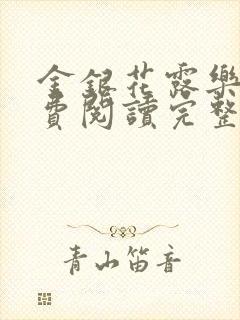 金銀花露樂
費閱讀完整
青山笛音